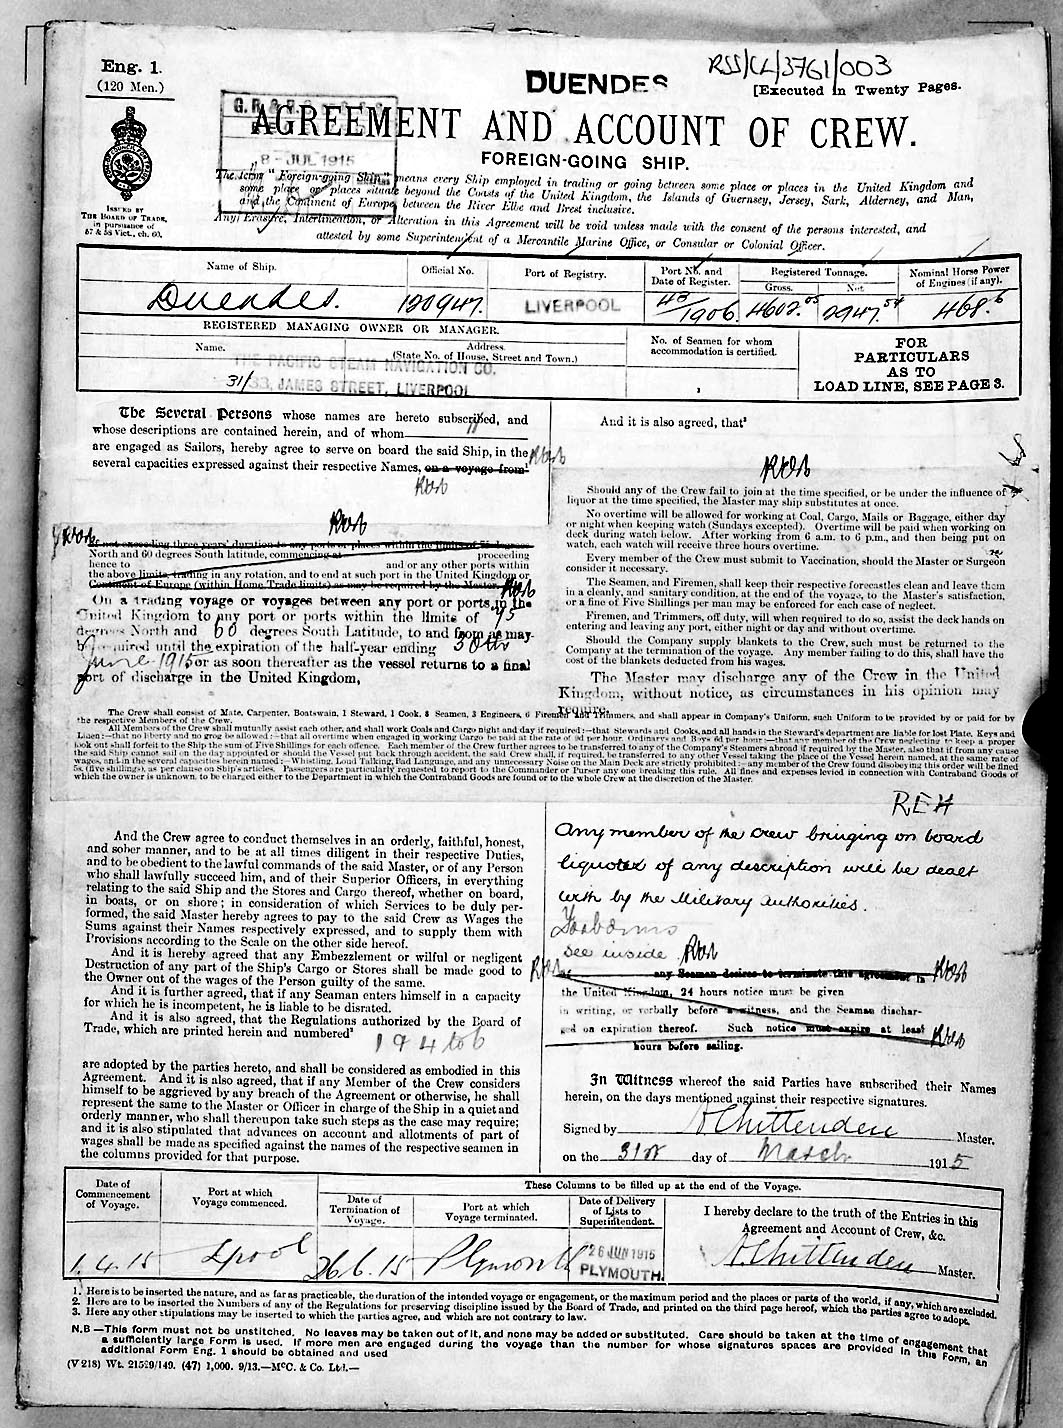 Eng. 1.
(120 Men.)
DUENDES
RSS/CL/3761/003
[Executed in Twenty Pages.
AGREEMENT AND ACCOUNT OF CREW.
FOREIGN-GOING SHIP.
8 - JUL 1915
ISSUED BY
THE BOARD OF TRADE,
in pursuance of
57 & 58 Vict., ch. 60.
The term "Foreign-going Ship" means every Ship employed in trading or going between some place or places in the United Kingdom and
some place or places situate beyond the Coasts of the United Kingdom, the Islands of Guernsey, Jersey, Sark, Alderney, and Man,
and the Continent of Europe, between the River Elbe and Brest inclusive.
Any Erasure, Interlineation, or Alteration in this Agreement will be void unless made with the consent of the persons interested, and
attested by some Superintendent of a Mercantile Marine Office, or Consular or Colonial Officer.
Name of Ship.
Official No.
Port of Registry.
Port No. and
Date of Register.
Registered Tonnage.
Gross.
Net.
Nominal Horse Power
of Engines (if any).
Duendes.
120947.
LIVERPOOL
1906.
4602.
2947.
468.
REGISTERED MANAGING OWNER OR MANAGER.
Name.
Address.
(State No. of House, Street and Town.)
THE PACIFIC STEAM NAVIGATION CO.
31/33, JAMES STREET, LIVERPOOL
No. of Seamen for whom
accommodation is certified.
FOR
PARTICULARS
AS TO
LOAD LINE, SEE PAGE 3.
The Several Persons whose names are hereto subscribed, and
whose descriptions are contained herein, and of whom
are engaged as Sailors, hereby agree to serve on board the said Ship, in the
several capacities expressed against their respective Names, on a voyage from¹
or not exceeding three years' duration to any ports or places within the limits of 75 degrees
North and 60 degrees South latitude, commencing at proceeding
hence to and or any other ports within
the above limits, trading in any rotation, and to end at such port in the United Kingdom or
Continent of Europe (within Home Trade limits) as may be required by the Master.
On a trading voyage or voyages between any port or ports in the
United Kingdom to any port or ports within the limits of 75
degrees North and 60 degrees South Latitude, to and from as may
be required until the expiration of the half-year ending 30th
June 1915 or as soon thereafter as the vessel returns to a final
port of discharge in the United Kingdom,
And it is also agreed, that³
Should any of the Crew fail to join at the time specified, or be under the influence of
liquor at the time specified, the Master may ship substitutes at once.
No overtime will be allowed for working at Coal, Cargo, Mails or Baggage, either day
or night when keeping watch (Sundays excepted). Overtime will be paid when working on
deck during watch below. After working from 6 a.m. to 6 p.m., and then being put on
watch, each watch will receive three hours overtime.
Every member of the Crew must submit to Vaccination, should the Master or Surgeon
consider it necessary.
The Seamen, and Firemen, shall keep their respective forecastles clean and leave them
in a cleanly, and sanitary condition, at the end of the voyage, to the Master's satisfaction,
or a fine of Five Shillings per man may be enforced for each case of neglect.
Firemen, and Trimmers, off duty, will when required to do so, assist the deck hands on
entering and leaving any port, either night or day and without overtime.
Should the Company supply blankets to the Crew, such must be returned to the
Company at the termination of the voyage. Any member failing to do this, shall have the
cost of the blankets deducted from his wages.
The Master may discharge any of the Crew in the United
Kingdom, without notice, as circumstances in his opinion may
require.
The Crew shall consist of Mate, Carpenter, Boatswain, 1 Steward, 1 Cook, 8 Seamen, 3 Engineers, 6 Firemen and Trimmers, and shall appear in Company's Uniform, such Uniform to be provided by or paid for by
the respective Members of the Crew.
All Members of the Crew shall mutually assist each other, and shall work Coals and Cargo night and day if required :—that Stewards and Cooks, and all hands in the Steward's department are liable for lost Plate, Keys and
Linen :—that no liberty and no grog be allowed :—that all overtime when engaged in working Cargo be paid at the rate of 9d per hour, Ordinarys and Boys 6d per hour :—that any member of the crew neglecting to keep a proper
look out shall forfeit to the Ship the sum of Five Shillings for each offence. Each Member of the Crew further agrees to be transferred to any of the Company's Steamers abroad if required by the Master, also that if from any cause
the said Ship cannot sail on the day appointed or should the Vessel put back through accident, the said Crew shall, if required, be transferred to any other Vessel taking the place of the Vessel herein named, at the same rate of
wages, and in the several capacities herein named :—Whistling, Loud Talking, Bad Language, and any unnecessary Noise on the Main Deck are strictly prohibited :—any member of the Crew found disobeying this order will be fined
5s. (five shillings), as per clause on Ship's articles. Passengers are particularly requested to report to the Commander or Purser any one breaking this rule. All fines and expenses levied in connection with Contraband Goods of
which the owner is unknown, to be charged either to the Department in which the Contraband Goods are found or to the whole Crew at the discretion of the Master.
And the Crew agree to conduct themselves in an orderly, faithful, honest,
and sober manner, and to be at all times diligent in their respective Duties,
and to be obedient to the lawful commands of the said Master, or of any Person
who shall lawfully succeed him, and of their Superior Officers, in everything
relating to the said Ship and the Stores and Cargo thereof, whether on board,
in boats, or on shore; in consideration of which Services to be duly per-
formed, the said Master hereby agrees to pay to the said Crew as Wages the
Sums against their Names respectively expressed, and to supply them with
Provisions according to the Scale on the other side hereof.
And it is hereby agreed, that any Embezzlement or wilful or negligent
Destruction of any part of the Ship's Cargo or Stores shall be made good to
the Owner out of the wages of the Person guilty of the same.
And it is further agreed, that if any Seaman enters himself in a capacity
for which he is incompetent, he is liable to be disrated.
And it is also agreed, that the Regulations authorized by the Board of
Trade, which are printed herein and numbered²
1 & 4 to 6
are adopted by the parties hereto, and shall be considered as embodied in this
Agreement. And it is also agreed, that if any Member of the Crew considers
himself to be aggrieved by any breach of the Agreement or otherwise, he shall
represent the same to the Master or Officer in charge of the Ship in a quiet and
orderly manner, who shall thereupon take such steps as the case may require;
and it is also stipulated that advances on account and allotments of part of
wages shall be made as specified against the names of the respective seamen in
the columns provided for that purpose.
REH
Any member of the crew bringing on board
liquors of any description will be dealt
with by the Military authorities.
see inside
any Seaman desires to terminate this agreement in
the United Kingdom, 24 hours notice must be given
in writing, or verbally before a witness, and the Seaman dischar-
ged on expiration thereof. Such notice must expire at least
hours before sailing.
In Witness whereof the said Parties have subscribed their Names
herein, on the days mentioned against their respective signatures.
Signed by A Chittenden Master.
on the 31st day of March 1915
These Columns to be filled up at the end of the Voyage.
Date of
Commencement
of Voyage.
Port at which
Voyage commenced.
Date of
Termination of
Voyage.
Port at which
Voyage terminated.
Date of Delivery
of Lists to
Superintendent.
I hereby declare to the truth of the Entries in this
Agreement and Account of Crew, &c.
1.4.15
Lpool
26.6.15
Plymouth
26 JUN 1915
PLYMOUTH.
A. Chittenden Master.
1. Here is to be inserted the nature, and as far as practicable, the duration of the intended voyage or engagement, or the maximum period and the places or parts of the world, if any, which are excluded.
2. Here are to be inserted the Numbers of any of the Regulations for preserving discipline issued by the Board of Trade, and printed on the third page hereof, which the parties agree to adopt.
3. Here any other stipulations may be inserted to which the parties agree, and which are not contrary to law.
N.B—This form must not be unstitched. No leaves may be taken out of it, and none may be added or substituted. Care should be taken at the time of engagement that
a sufficiently large Form is used. If more men are engaged during the voyage than the number for whose signatures spaces are provided in this Form, an
additional Form Eng. 1 should be obtained and used
(V 218) Wt. 21529/149. (47) 1,000. 9/13.—McC. & Co. Ltd.—